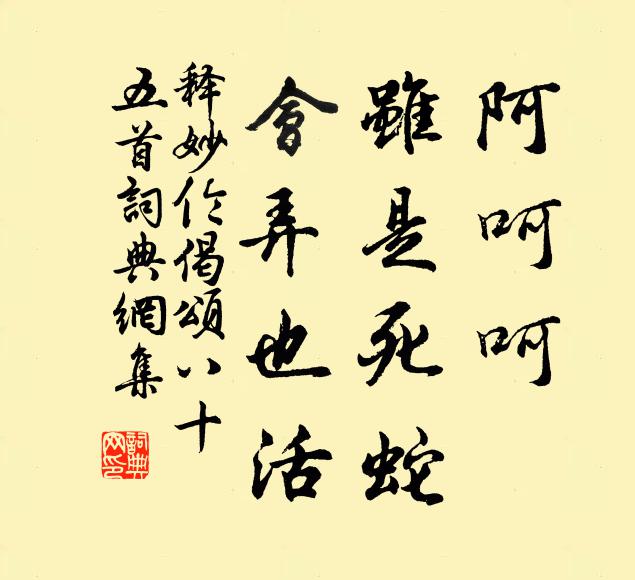 阿呵呵
雖是死蛇
會弄也活
释妙伦偈頌八十
五首詞典網集
詞典网印